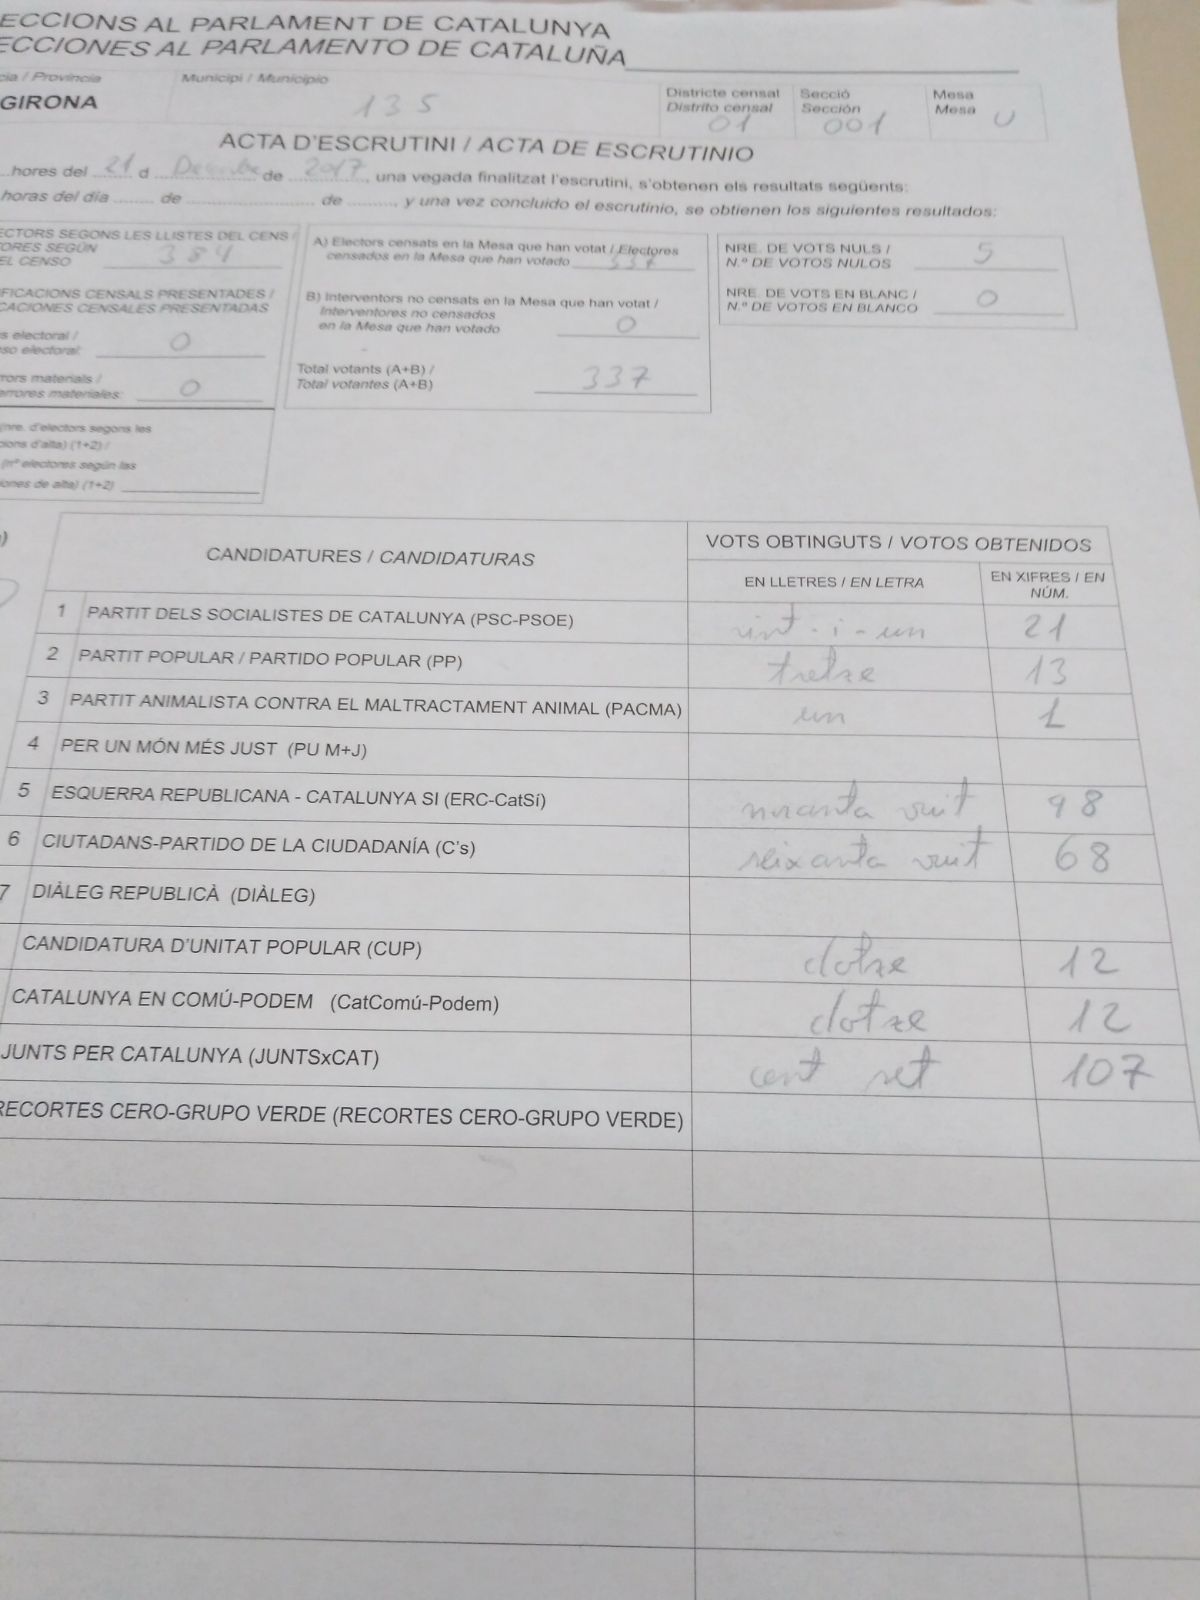 ECCIONS AL PARLAMENT DE CATALUNYA
ECCIONES AL PARLAMENTO DE CATALUÑA
cia / Provincia
GIRONA
Municipi / Municipio
135
Districte censat
Distrito censal
01
Secció
Sección
001
Mesa
Mesa
U
ACTA D'ESCRUTINI / ACTA DE ESCRUTINIO
...hores del 21 d Desembre de 2017, una vegada finalitzat l'escrutini, s'obtenen els resultats següents:
horas del día ........ de ........................ de ........., y una vez concluido el escrutinio, se obtienen los siguientes resultados:
ECTORS SEGONS LES LLISTES DEL CENS /
ORES SEGÚN
EL CENSO 384
IFICACIONS CENSALS PRESENTADES /
CACIONES CENSALES PRESENTADAS
s electoral /
so electoral: 0
rors materials /
errores materiales: 0
(nre. d'electors segons les
cions d'alta) (1+2) /
(nº electores según las
iones de alta) (1+2)
A) Electors censats en la Mesa que han votat / Electores
censados en la Mesa que han votado 337
B) Interventors no censats en la Mesa que han votat /
Interventores no censados
en la Mesa que han votado 0
Total votants (A+B) /
Total votantes (A+B) 337
NRE. DE VOTS NULS /
N.º DE VOTOS NULOS 5
NRE. DE VOTS EN BLANC /
N.º DE VOTOS EN BLANCO 0
CANDIDATURES / CANDIDATURAS
VOTS OBTINGUTS / VOTOS OBTENIDOS
EN LLETRES / EN LETRA
EN XIFRES / EN
NÚM.
1 PARTIT DELS SOCIALISTES DE CATALUNYA (PSC-PSOE) vint-i-un 21
2 PARTIT POPULAR / PARTIDO POPULAR (PP) tretze 13
3 PARTIT ANIMALISTA CONTRA EL MALTRACTAMENT ANIMAL (PACMA) un 1
4 PER UN MÓN MÉS JUST (PU M+J)
5 ESQUERRA REPUBLICANA - CATALUNYA SI (ERC-CatSí) noranta vuit 98
6 CIUTADANS-PARTIDO DE LA CIUDADANÍA (C's) seixanta vuit 68
7 DIÀLEG REPUBLICÀ (DIÀLEG)
CANDIDATURA D'UNITAT POPULAR (CUP) dotze 12
CATALUNYA EN COMÚ-PODEM (CatComú-Podem) dotze 12
JUNTS PER CATALUNYA (JUNTSxCAT) cent set 107
RECORTES CERO-GRUPO VERDE (RECORTES CERO-GRUPO VERDE)